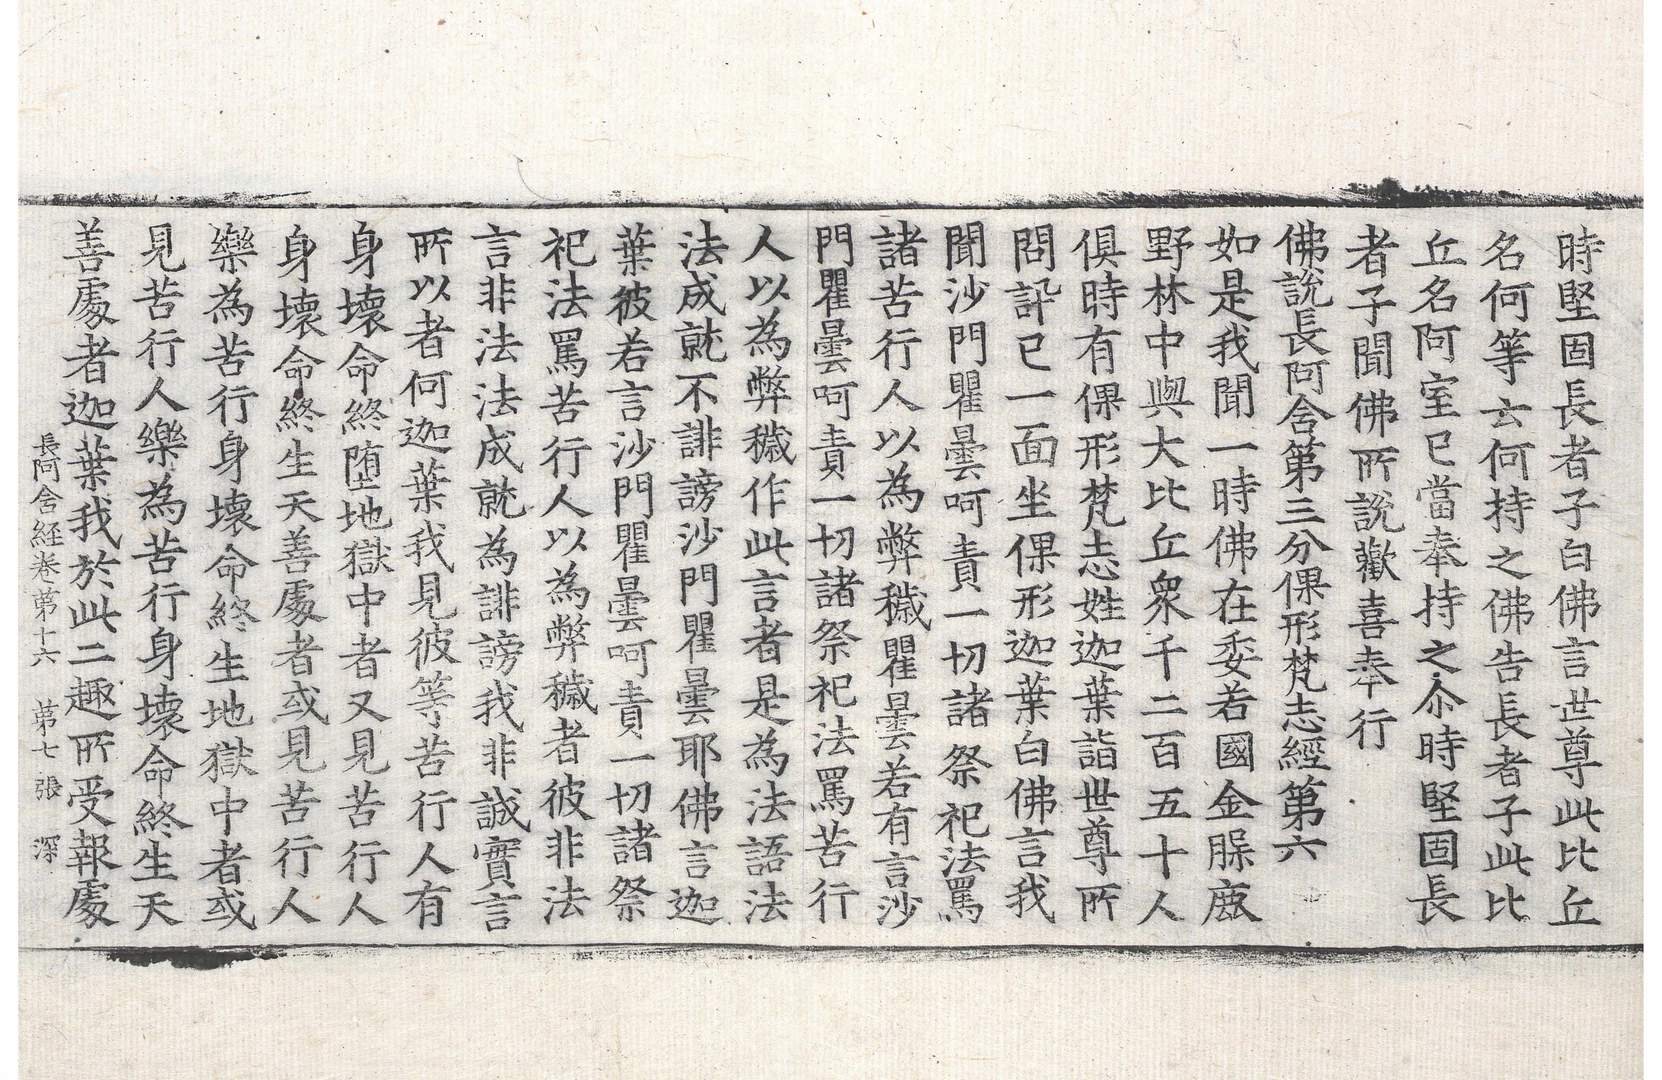 時堅固長者子白佛言世尊此比丘
名何等云何持之佛告長者子此比
丘名阿室已當奉持之尒時堅固長
者子聞佛所說歡喜奉行
佛說長阿含第三分倮形梵志經第六
如是我聞一時佛在委若國金脵鹿
野林中與大比丘衆千二百五十人
俱時有倮形梵志姓迦葉詣世尊所
問訊已一面坐倮形迦葉白佛言我
聞沙門瞿曇呵責一切諸祭祀法罵
諸苦行人以為弊穢瞿曇若有言沙
門瞿曇呵責一切諸祭祀法罵苦行
人以為弊穢作此言者是為法語法
法成就不誹謗沙門瞿曇耶佛言迦
葉彼若言沙門瞿曇呵責一切諸祭
祀法罵苦行人以為弊穢者彼非法
言非法法成就為誹謗我非誠實言
所以者何迦葉我見彼等苦行人有
身壞命終堕地獄中者又見苦行人
身壞命終生天善處者或見苦行人
樂為苦行身壞命終生地獄中者或
見苦行人樂為苦行身壞命終生天
善處者迦葉我於此二趣所受報處
長阿含經卷第十六 第七張 深